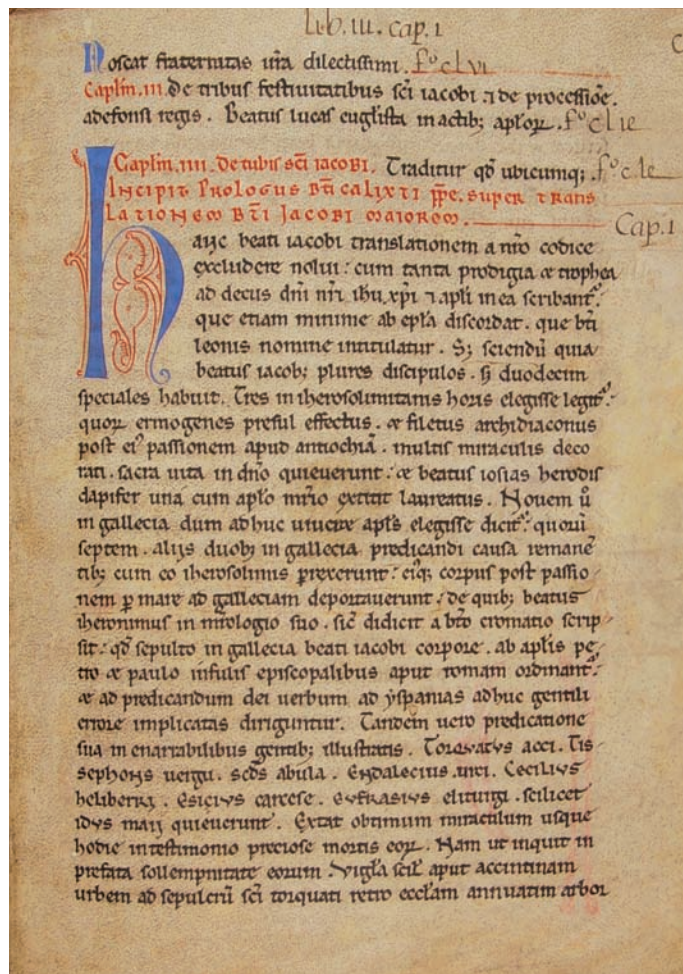 lib. III. cap. 1
Noscat fraternitas ur̄a dilectissimi. fº clvi
Capl̄m. III. De tribus festiuitatibus sc̄i iacobi. ⁊ de processiōe.
adefonsi regis. Beatus lucas eugl̄ista in actib; apl̄oꝝ. fº clie
Capl̄m. IIII. De tubis sc̄i iacobi. Traditur qd̄ ubicumq; fº cle
Incipit prologus bt̄i calixti pp̄e. super trans
lationem bt̄i Jacobi maiorem. Cap. 1
Hanc beati iacobi translationem a nr̄o codice
excludere nolui: cum tanta prodigia & trophea
ad decus dn̄i nr̄i ih̄u xp̄i ⁊ apl̄i in ea scribant᷑:
que etiam minime ab epl̄a discordat. que bt̄i
leonis nomine intitulatur. S; sciendū quia
beatus iacob; plures discipulos. s; duodecim
speciales habuit. Tres in iherosolimitanis horis elegisse legit᷑:
quoꝝ ermogenes presul effectus. & filetus archidiaconus
post ei᷒ passionem apud antiochiā. multis miraculis deco
rati. sacra uita in dn̄o quieuerunt: & beatus iosias herodis
dapifer una cum apl̄o mr̄io extitit laureatus. Nouem ū
in gallecia dum adhuc uiueret apl̄s elegisse dicit᷑: quorū
septem. alijs duob; in gallecia predicandi causa remanē
tib; cum eo iherosolimis ꝑrexerunt: ei᷒q; corpus post passio
nem ꝑ mare ad galleciam deportauerunt: de quib; beatus
iheronimus in mr̄ologio suo. sic̄ didicit a bt̄o cromatio scrip
sit: qd̄ sepulto in gallecia beati iacobi corpore. ab apl̄is pe
tro & paulo infulis episcopalibus aput romam ordinant᷑:
& ad predicandum dei uerbum ad yspanias adhuc gentili
errore implicatas diriguntur. Tandem uero predicatione
sua in enarrabilibus gentib; illustratis. Torquatus acci. Tis
sephons uergu. scd̄s abula. Endalecius. urci. Cecilius
heliberri. Esicius carcese. Eufrasius eliturgi. scilicet
idus maij quieuerunt. Extat obtimum miraculum usque
hodie in testimonio preciose mortis eoꝝ. Nam ut inquit in
prefata sollempnitate eorum. Vigl̄a scil̄ aput accintinam
urbem ad sepulcrū sc̄i torquati retro eccl̄am annuatim arbor